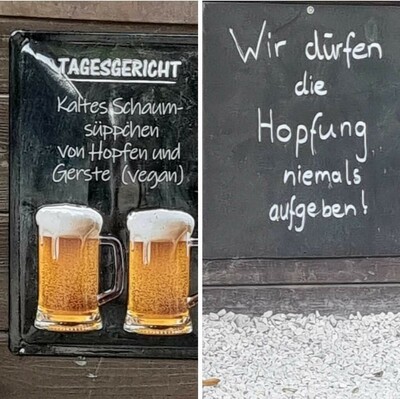 TAGESGERICHT
Kaltes Schaum-
süppchen
von Hopfen und
Gerste (vegan)
Wir dürfen
die
Hopfung
niemals
aufgeben!